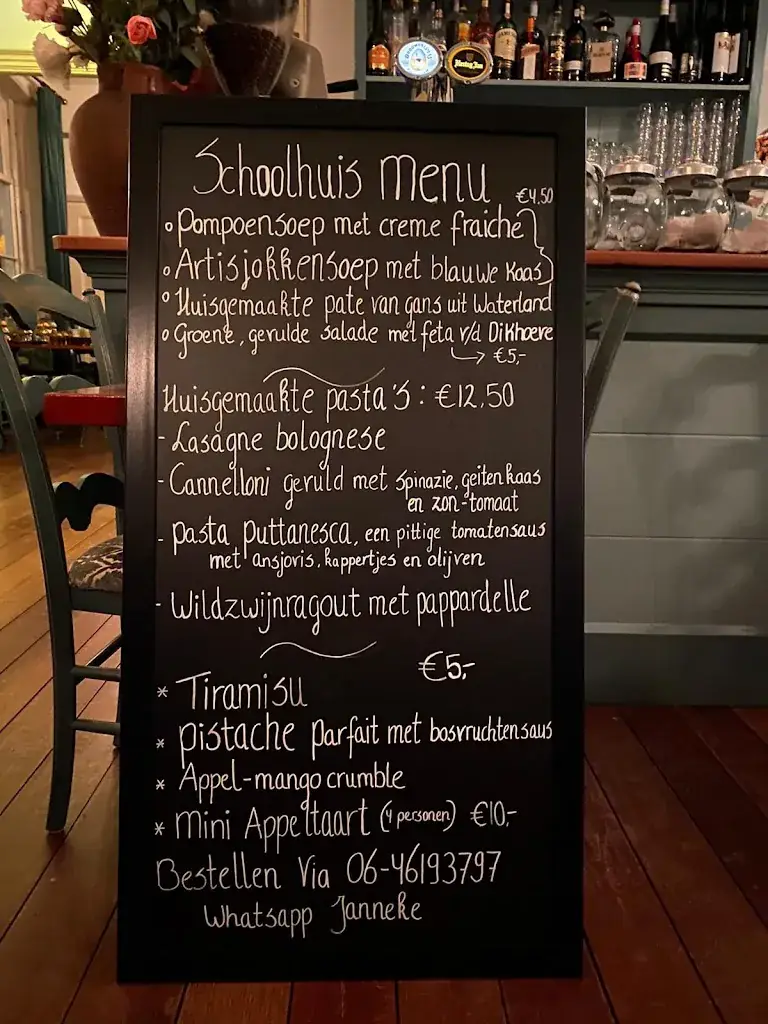 Schoolhuis Menu
€4,50
Pompoensoep met creme fraiche
Artisjokkensoep met blauwe kaas
Huisgemaakte pate van gans uit Waterland
Groene, gerulde salade met feta v/d Dikhoeve
€5,-
Huisgemaakte pasta's: €12,50
- Lasagne bolognese
- Cannelloni geruld met spinazie, geitenkaas
en zon-tomaat
- pasta puttanesca, een pittige tomatensaus
met ansjovis, kappertjes en olijven
- Wildzwijnragout met pappardelle
€5,-
* Tiramisu
* pistache parfait met bosvruchtensaus
* Appel-mango crumble
* Mini Appeltaart (4 personen) €10,-
Bestellen Via 06-46193797
Whatsapp Janneke